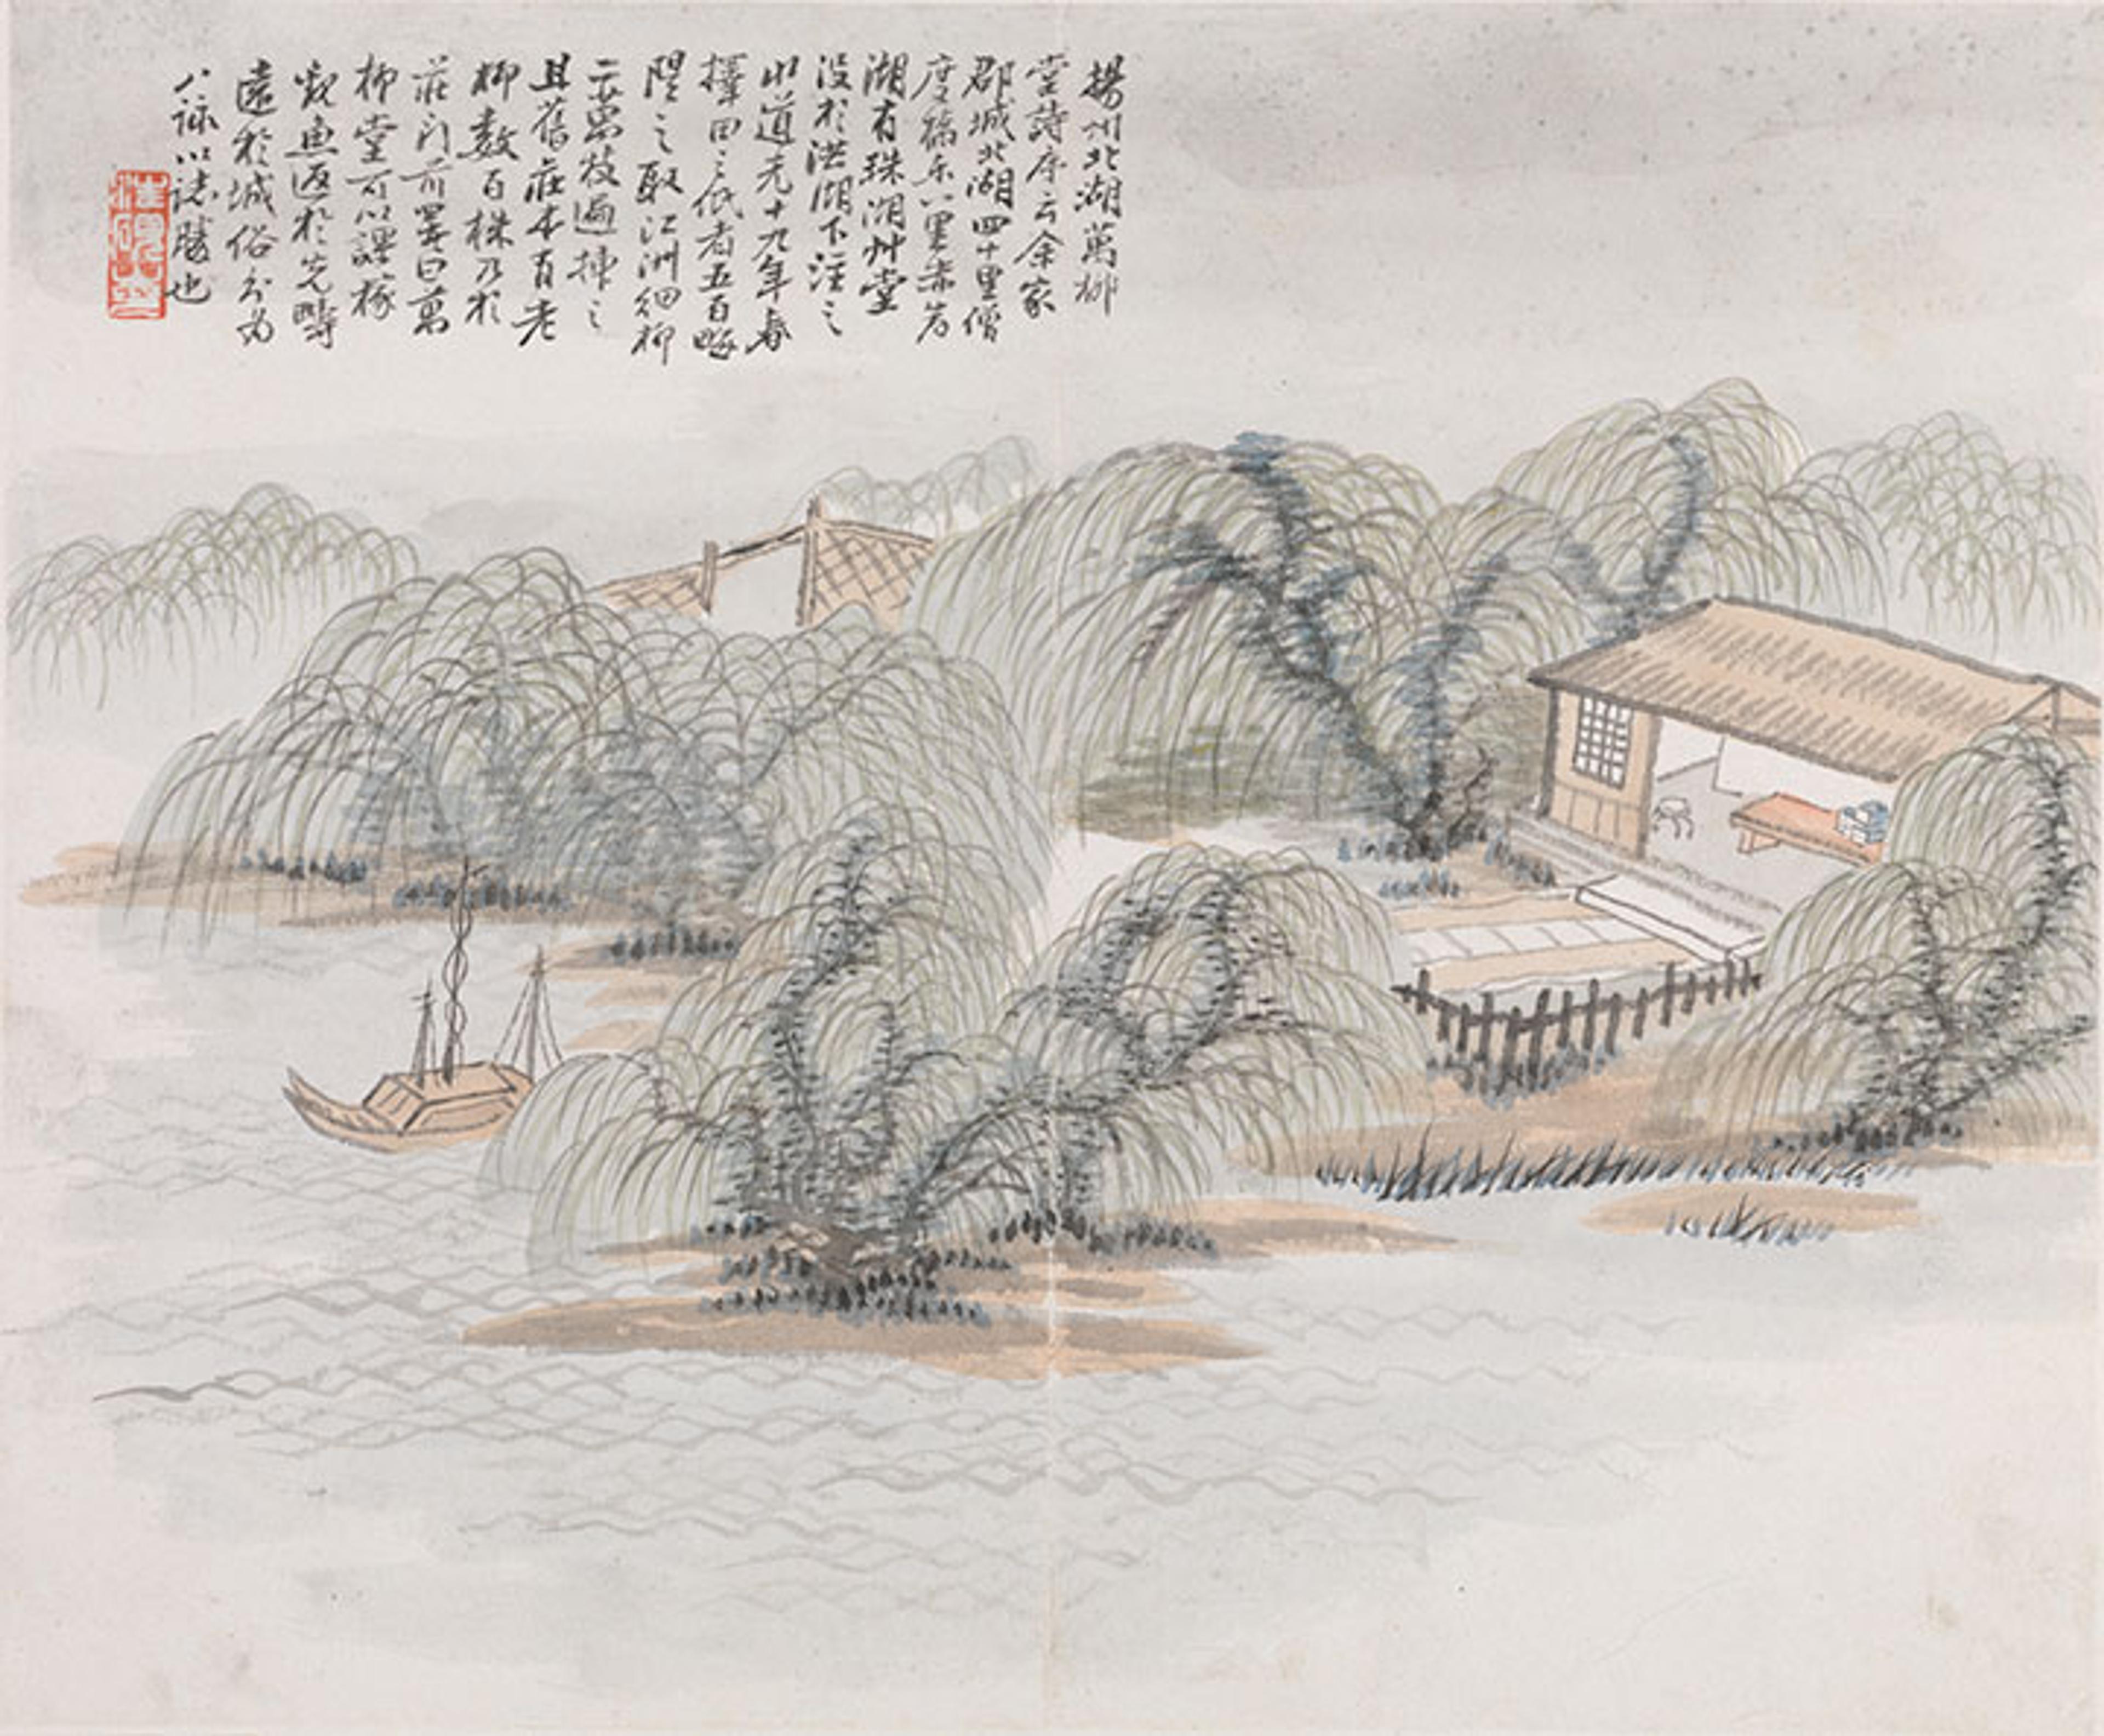 揚州北湖萬柳
堂詩序云余家
郡城北湖四十里僧
度橋東八里赤岸
湖有珠湖艸堂
没於洪湖下注之
水道光十九年春
擇田之低者五百畮
隄之取江洲細柳
二萬枝遍插之
且舊莊本有老
柳數百株乃於
莊門前署曰萬
柳堂可以課稼
觀魚返於先疇
遠於城俗分為
八詠以誌勝也